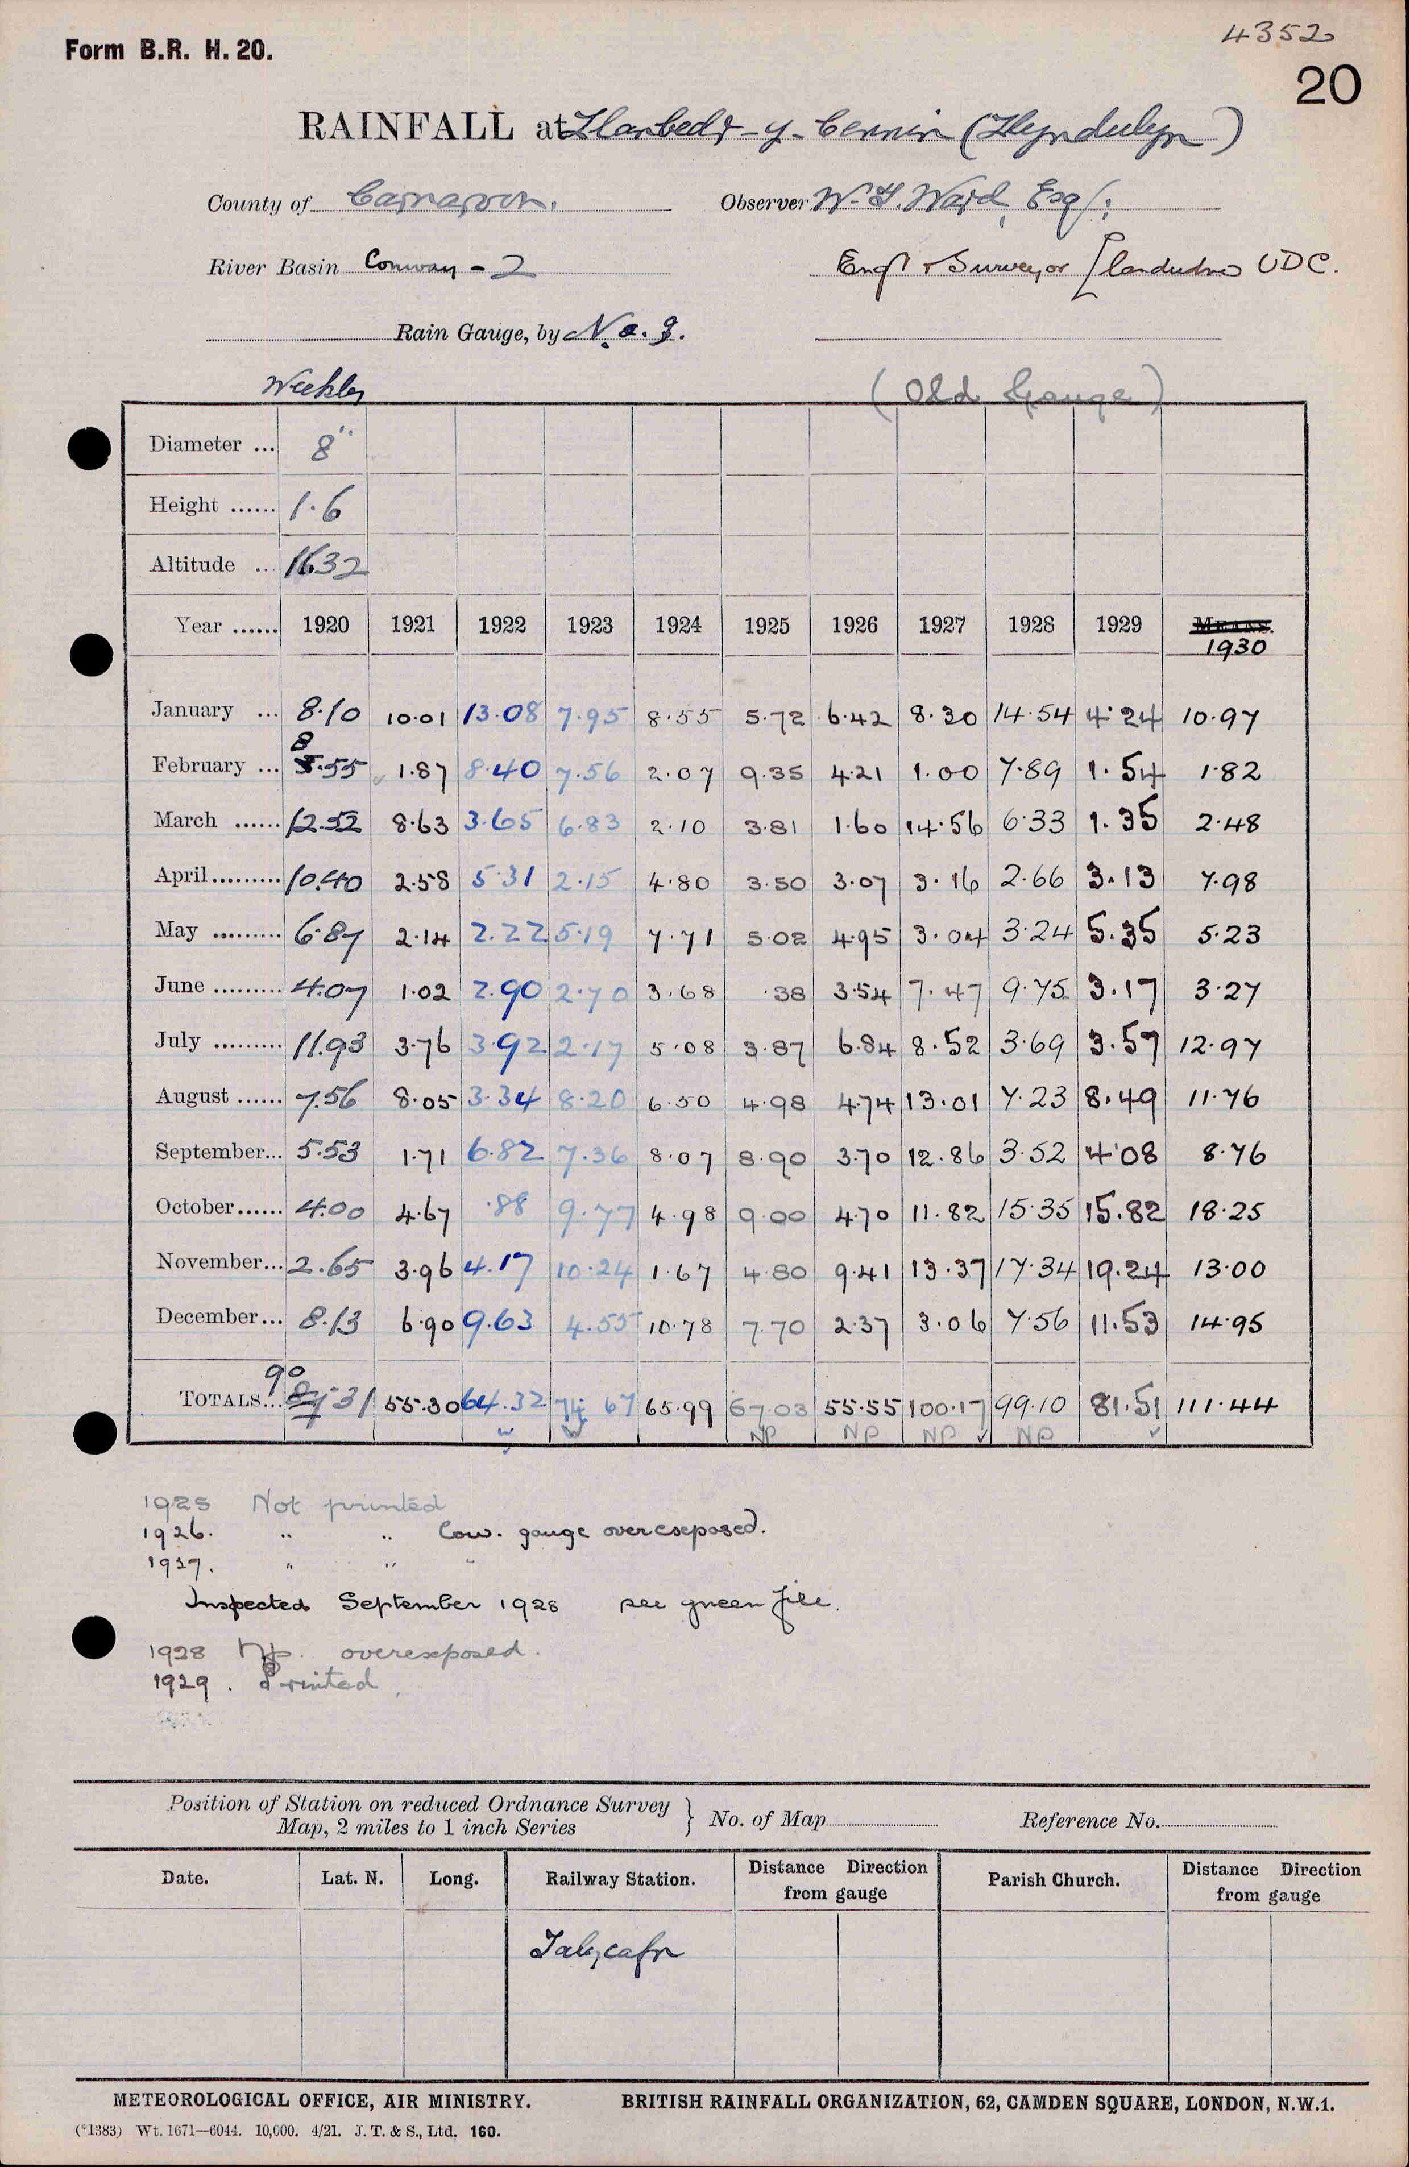 4352
Form B.R. H. 20.
20
RAINFALL at Llanbedr-y-Cennin (Llyn dulyn)
County of Carnarvon. Observer W. T. Ward, Esq.;
River Basin Conway - 2 Engr & Surveyor Llandudno UDC.
Rain Gauge, by N. & Z.
Weekly (Old Gauge)
Diameter ... 8"
Height ...... 1.6
Altitude ... 1632
Year ...... 1920 1921 1922 1923 1924 1925 1926 1927 1928 1929 MEANS. 1930
January ... 8.10 10.01 13.08 7.95 8.55 5.72 6.42 8.30 14.54 4.24 10.97
February ... 8.55 1.87 8.40 7.56 2.07 9.35 4.21 1.00 7.89 1.54 1.82
March ...... 12.52 8.63 3.65 6.83 2.10 3.81 1.60 14.56 6.33 1.35 2.48
April ......... 10.40 2.58 5.31 2.15 4.80 3.50 3.07 3.16 2.66 3.13 7.98
May ......... 6.87 2.14 2.22 5.19 7.71 5.02 4.95 3.04 3.24 5.35 5.23
June ......... 4.07 1.02 2.90 2.70 3.68 .38 3.54 7.47 9.75 3.17 3.27
July ......... 11.93 3.76 3.92 2.17 5.08 3.87 6.84 8.52 3.69 3.57 12.97
August ...... 7.56 8.05 3.34 8.20 6.50 4.98 4.74 13.01 7.23 8.49 11.76
September... 5.53 1.71 6.82 7.36 8.07 8.90 3.70 12.86 3.52 4.08 8.76
October...... 4.00 4.67 .88 9.77 4.98 9.00 4.70 11.82 15.35 15.82 18.25
November... 2.65 3.96 4.17 10.24 1.67 4.80 9.41 13.37 17.34 19.24 13.00
December... 8.13 6.90 9.63 4.55 10.78 7.70 2.37 3.06 7.56 11.53 14.95
TOTALS... 90.31 55.30 64.32 74.67 65.99 67.03 55.55 100.17 99.10 81.51 111.44
NP NP NP NP
1925 Not printed
1926. " " Cow. gauge overexposed.
1927. " " "
Inspected September 1928 see green file.
1928 Np. overexposed.
1929. Printed.
Position of Station on reduced Ordnance Survey
Map, 2 miles to 1 inch Series } No. of Map Reference No.
Date. Lat. N. Long. Railway Station. Distance Direction from gauge Parish Church. Distance Direction from gauge
Talycafn
METEOROLOGICAL OFFICE, AIR MINISTRY. BRITISH RAINFALL ORGANIZATION, 62, CAMDEN SQUARE, LONDON, N.W.1.
(*1383) Wt. 1671—6044. 10,000. 4/21. J. T. & S., Ltd. 160.